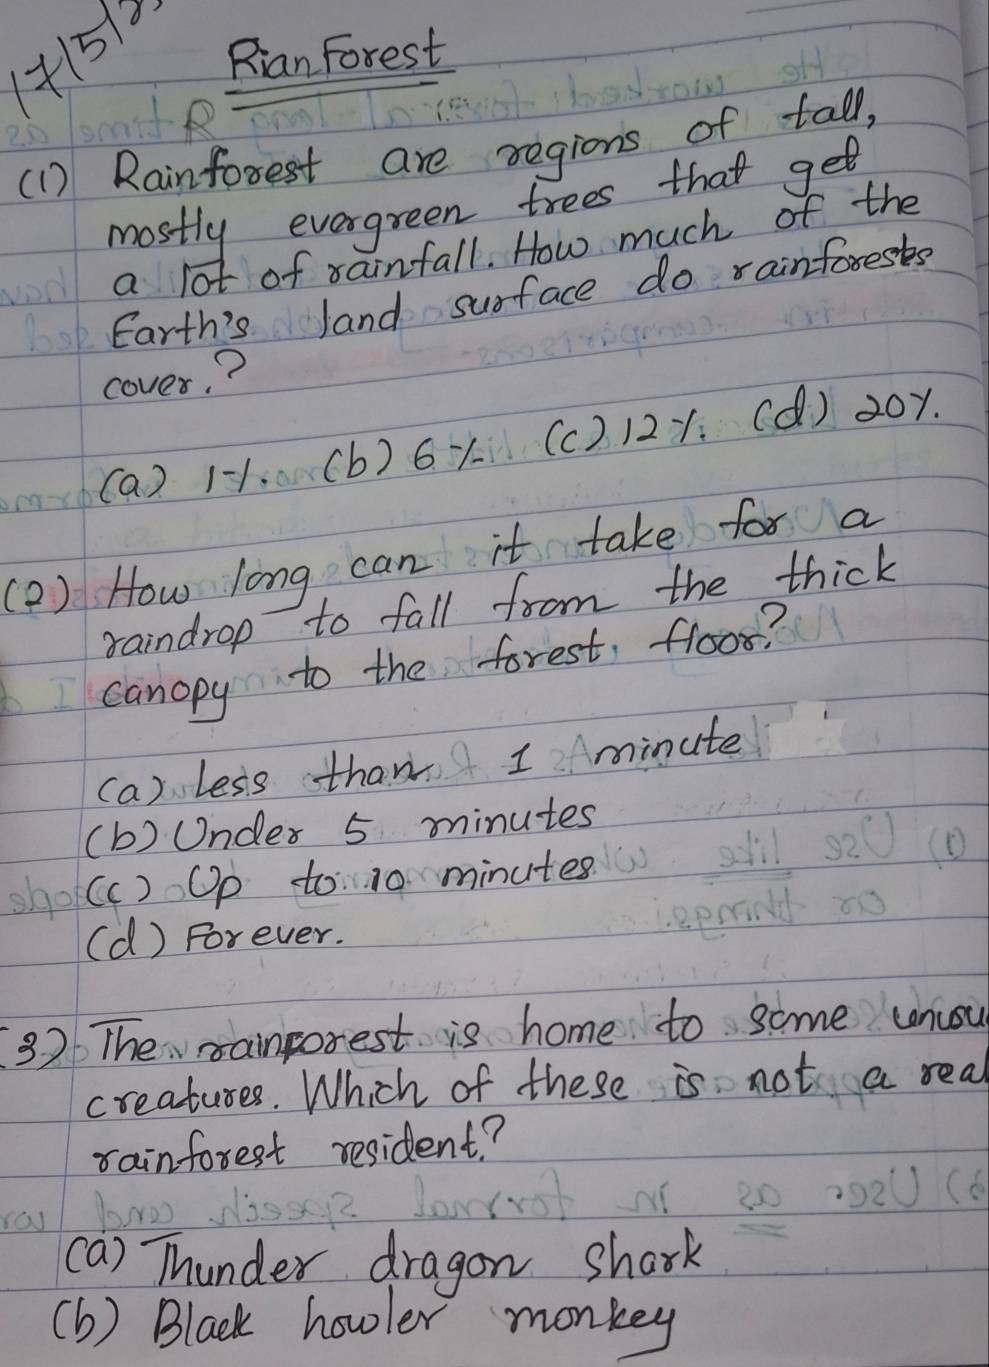 17/5/
Rian Forest
R
(1) Rainforest are regions of tall,
mostly evergreen trees that get
a lot of rainfall. How much of the
Earth's land surface do rainforests
cover.?
(a) 1%. (b) 6% (c) 12%. (d) 20%.
(2) How long can it take for a
raindrop to fall from the thick
canopy to the forest floor?
(a) Less than 1 minute
(b) Under 5 minutes
(c) Up to 10 minutes
(d) Forever.
(3) The rainforest is home to some
creatures. Which of these is not a real
rainforest resident?
(a) Thunder dragon shark
(b) Black howler monkey